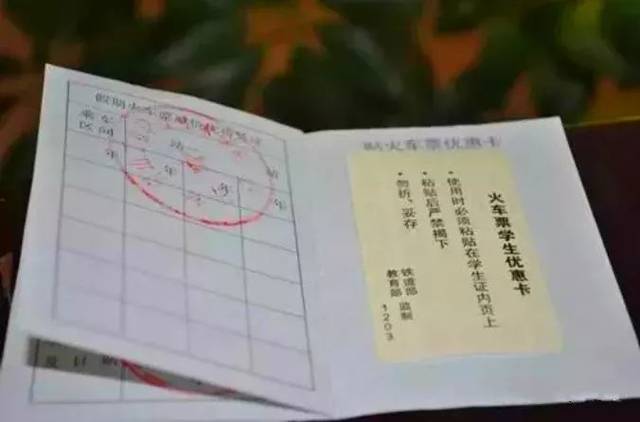 假期火车票减价优待凭证
乘车
区间
站
年
年
年
贴火车票优惠卡
火车票学生优惠卡
• 使用时必须粘贴在学生证内页上
• 粘贴后严禁揭下
• 勿折、妥存
铁道部
教育部
监制
1203